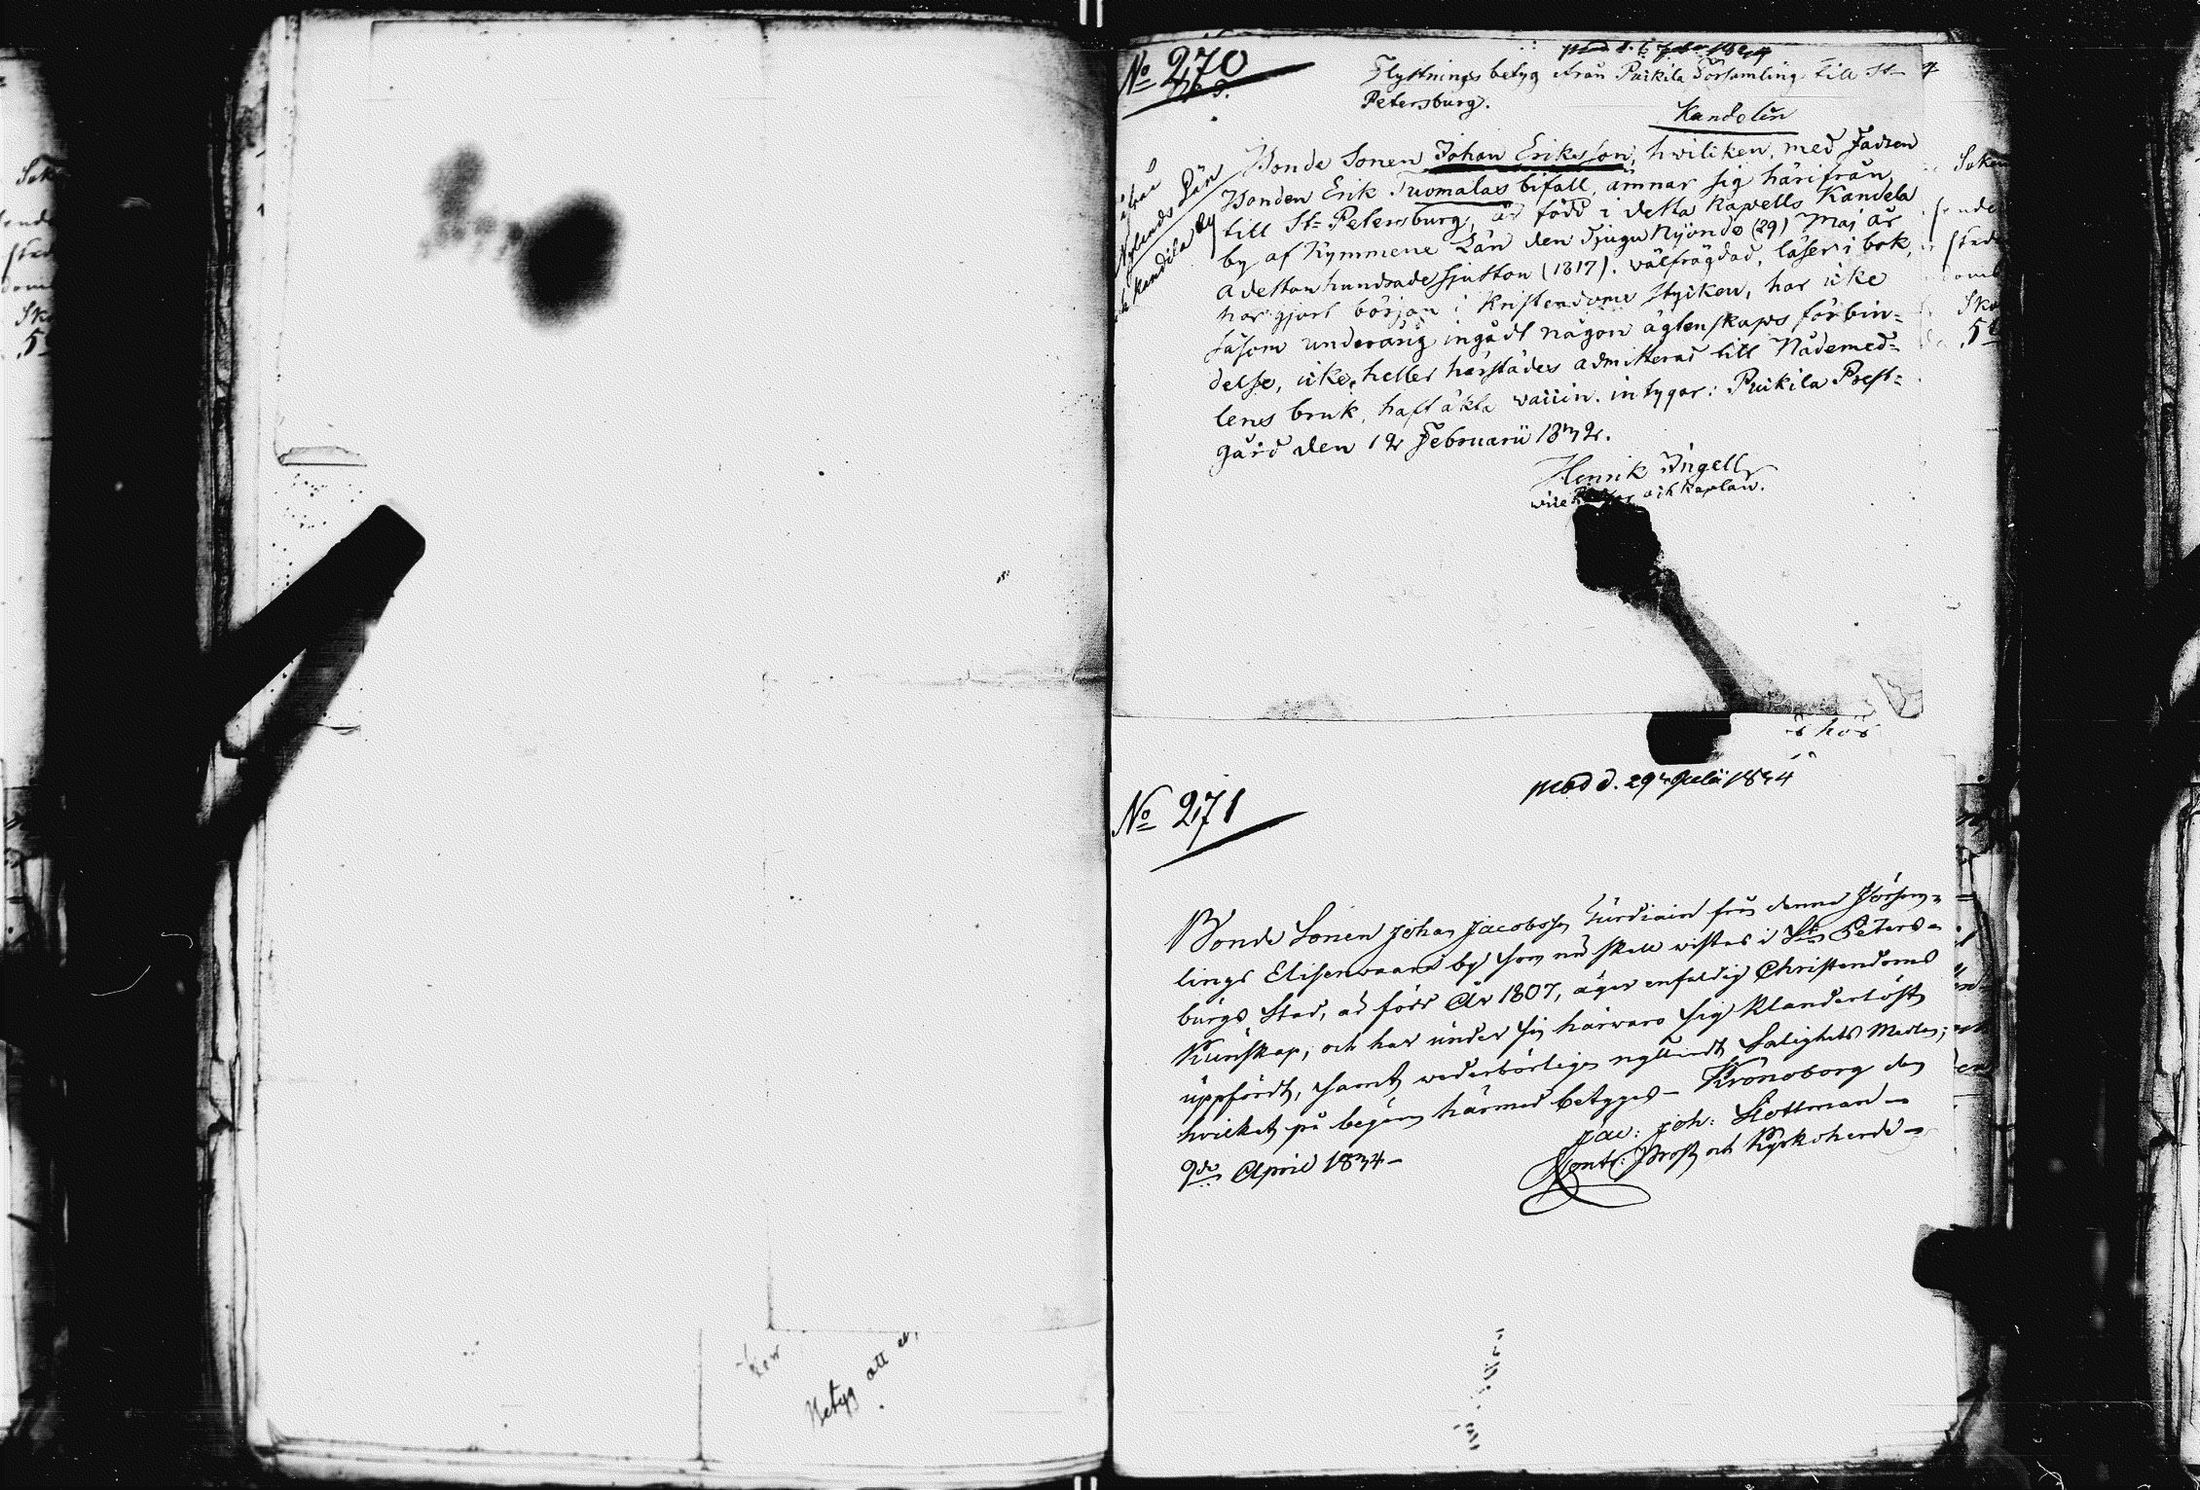 Betyg att
No 270
Flyttnings betyg ifrån Puikila Församling till St
Petersburg.
Kandolin
Bonde Sonen Johan Eriksson, hvilken, med Fadren
Bonden Erik Tuomalas bifall, ämnar sig härifrån
till St Petersburg, är född i detta Kapells Kandola
by af Kymmene Län den Tjugu Nijonde (29) Maj år
Adertonhundrade sjutton (1817). välfrägdad, läser i bok,
har gjort början i Kristendoms stycken, har icke
såsom underårig ingådt någon ägtenskaps förbin=
delse, icke heller härstädes admitterad till Nådemed=
lens bruk, haft äkta intygar: Puikila Prest=
gård den 12 Februarii 1832.
Henrik Ingell
och kaplan.
Nylands Län
Kandila by
är hör
No 271
Prod d. 29 Julii 1834
Bonde Sonen Johan Jacobsson från denna Försam=
lings Elisenvaara by som nu skall vistas i St Peters=
burgs Stad, är född År 1807, äger enfaldig Christendoms
Kunskap, och har under sin härvaro sig klanderlöst
uppfördt, samt vederbörligen nyttiadt Salighets Medlen;
hvilket på begäran härmed betyges – Kronoborg den
9de April 1834 –
Jac: Joh: Slottman –
Contr: Prost och Kyrkoherde –